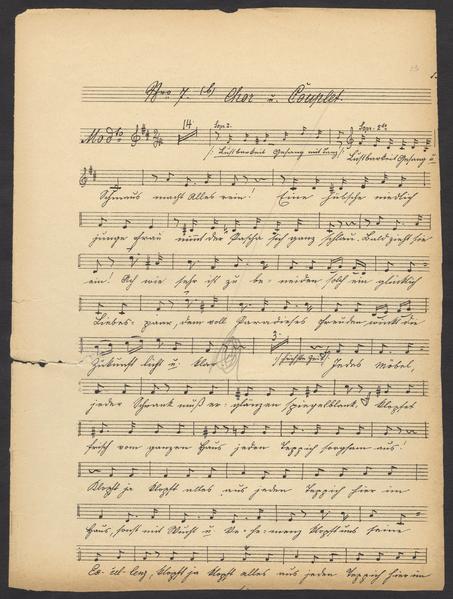 Nro 7. (b) Chor u. Couplet.
Modto 14 Sop. 2. Sop. 2
Lustbarkeit Gesang mit Tanz Lustbarkeit Gesang u
Schmaus macht Alles rein! Eine hübsche niedlich
junge Frau nimmt der Pascha sich ganz schlau. Bald zieht sie
ein! Ach wie sehr ist zu beneiden solch ein glücklich
Liebespaar, dem voll Paradieses Freuden, winkt die
Zukunft licht u. klar 3 Jedes Möbel,
jeder Schrank muß erglänzen spiegelblank, klopfet
frisch vom ganzen Haus jeden Teppich sorgsam aus!
Klopft ja klopft alles aus jeden Teppich hier im
Haus, sonst mit Wucht u. Vehemenz klopft uns seine
Excellenz, klopft ja klopft alles aus jeden Teppich hier im